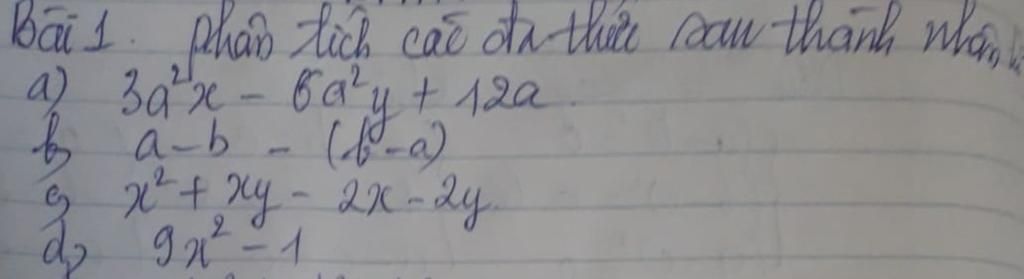 Bài 1. phân tích các đa thức sau thành nhân
a) 3a²x - 6a²y + 12a
b) a - b - (b - a)
c) x² + xy - 2x - 2y
d) 9x² - 1